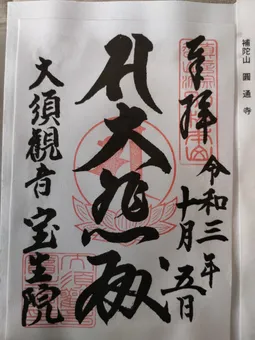 補陀山 圓通寺
奉拝
令和三年
十月五日
大悲殿
大須観音
宝生院